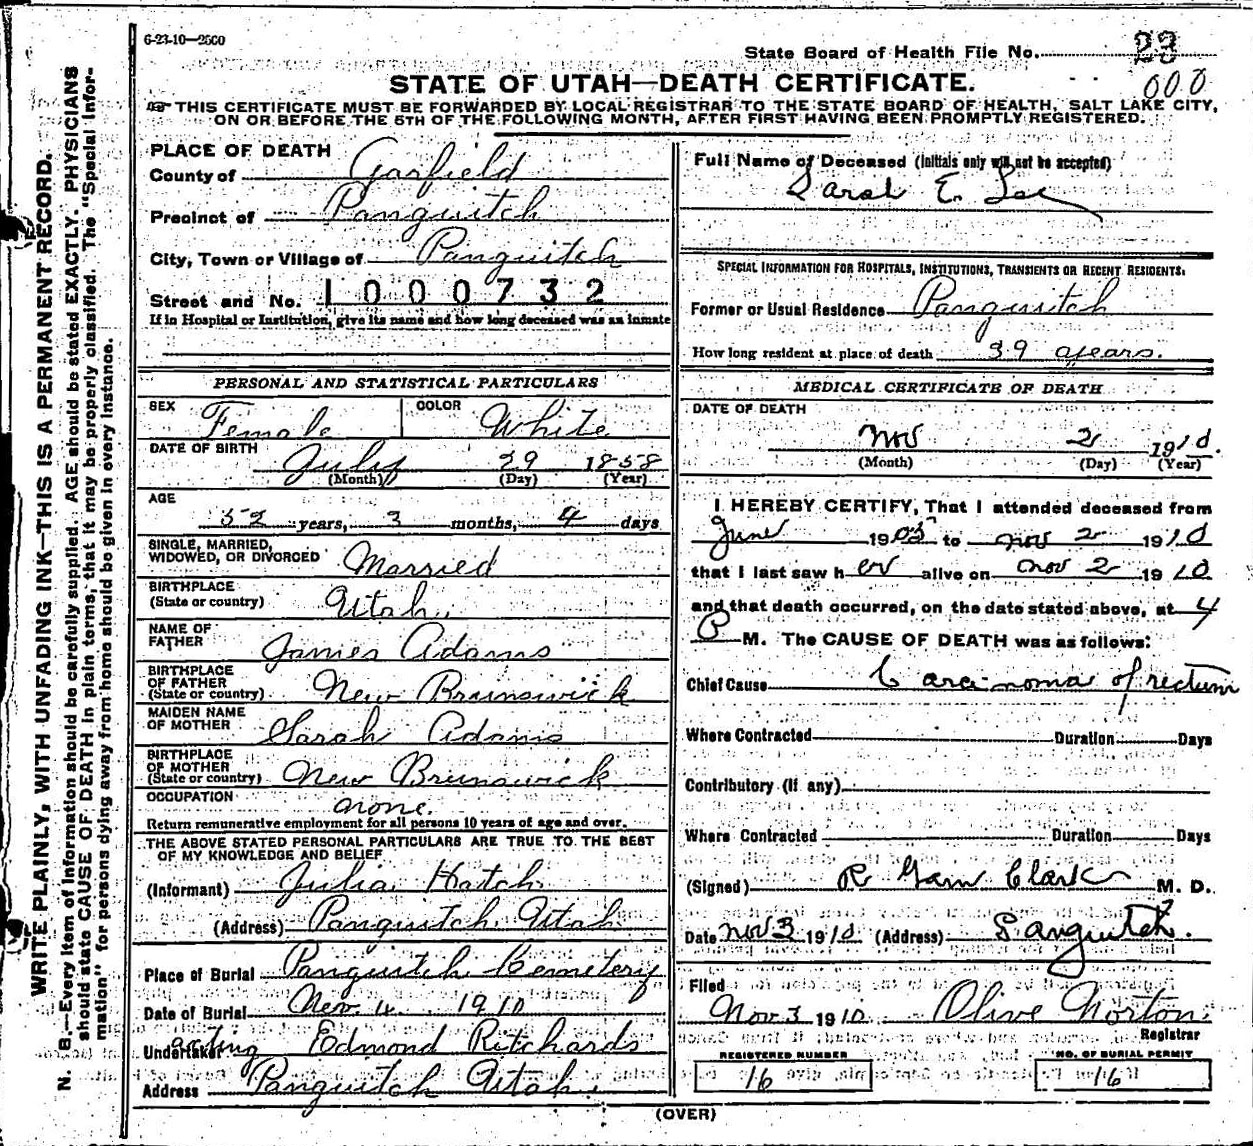 6-23-10—2500
State Board of Health File No. 23
000
STATE OF UTAH—DEATH CERTIFICATE.
THIS CERTIFICATE MUST BE FORWARDED BY LOCAL REGISTRAR TO THE STATE BOARD OF HEALTH, SALT LAKE CITY,
ON OR BEFORE THE 5TH OF THE FOLLOWING MONTH, AFTER FIRST HAVING BEEN PROMPTLY REGISTERED.
WRITE PLAINLY, WITH UNFADING INK—THIS IS A PERMANENT RECORD.
N. B.—Every item of information should be carefully supplied. AGE should be stated EXACTLY. PHYSICIANS
should state CAUSE OF DEATH in plain terms, that it may be properly classified. The "Special Infor-
mation" for persons dying away from home should be given in every instance.
PLACE OF DEATH
County of Garfield
Precinct of Panguitch
City, Town or Village of Panguitch
Street and No. 1000732
If in Hospital or Institution, give its name and how long deceased was an inmate
PERSONAL AND STATISTICAL PARTICULARS
SEX Female COLOR White
DATE OF BIRTH July 29 1858
(Month) (Day) (Year)
AGE
52 years, 3 months, 4 days
SINGLE, MARRIED,
WIDOWED, OR DIVORCED Married
BIRTHPLACE
(State or country) Utah
NAME OF
FATHER James Adams
BIRTHPLACE
OF FATHER
(State or country) New Brunswick
MAIDEN NAME
OF MOTHER Sarah Adams
BIRTHPLACE
OF MOTHER
(State or country) New Brunswick
OCCUPATION
none.
Return remunerative employment for all persons 10 years of age and over.
THE ABOVE STATED PERSONAL PARTICULARS ARE TRUE TO THE BEST
OF MY KNOWLEDGE AND BELIEF
(Informant) Julia Hatch
(Address) Panguitch Utah
Place of Burial Panguitch Cemetery
Date of Burial Nov. 4 1910
Undertaker acting Edmond Ritchards
Address Panguitch Utah.
Full Name of Deceased (Initials only will not be accepted)
Sarah E. Lee
SPECIAL INFORMATION FOR HOSPITALS, INSTITUTIONS, TRANSIENTS OR RECENT RESIDENTS.
Former or Usual Residence Panguitch
How long resident at place of death 39 years.
MEDICAL CERTIFICATE OF DEATH
DATE OF DEATH
Nov 2 1910.
(Month) (Day) (Year)
I HEREBY CERTIFY, That I attended deceased from
June 1905 to Nov 2 1910
that I last saw her alive on Nov 2 1910
and that death occurred, on the date stated above, at 4
P M. The CAUSE OF DEATH was as follows:
Chief Cause Carcinoma of rectum
Where Contracted Duration Days
Contributory (If any)
Where Contracted Duration Days
(Signed) R Garn Clark M. D.
Date Nov 3 1910 (Address) Panguitch.
Filed
Nov 3 1910 Olive Norton
Registrar
REGISTERED NUMBER
16
NO. OF BURIAL PERMIT
16
(OVER)